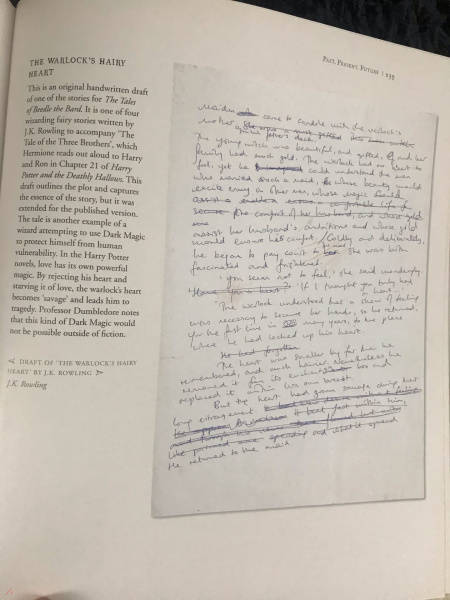 PAST, PRESENT, FUTURE | 235
THE WARLOCK'S HAIRY
HEART
This is an original handwritten draft
of one of the stories for The Tales
of Beedle the Bard. It is one of four
wizarding fairy stories written by
J.K. Rowling to accompany 'The
Tale of the Three Brothers', which
Hermione reads out aloud to Harry
and Ron in Chapter 21 of Harry
Potter and the Deathly Hallows. This
draft outlines the plot and captures
the essence of the story, but it was
extended for the published version.
The tale is another example of a
wizard attempting to use Dark Magic
to protect himself from human
vulnerability. In the Harry Potter
novels, love has its own powerful
magic. By rejecting his heart and
starving it of love, the warlock's heart
becomes 'savage' and leads him to
tragedy. Professor Dumbledore notes
that this kind of Dark Magic would
not be possible outside of fiction.
DRAFT OF 'THE WARLOCK'S HAIRY
HEART' BY J.K. ROWLING
J.K. Rowling
maiden came to condole with the warlock's
mother
The young witch was beautiful, and gifted, and her
family had much gold. The warlock had no heart to
feel, yet he could understand the man
who married such a maid, whose beauty would
excite envy in other men, whose magic could
secure the comfort of her husband, and whose gold
assist her husband's ambitions and whose gold
would ensure his comfort. Coldly and deliberately,
he began to pay court to her. She was both
fascinated and frightened.
'You seem not to feel,' she said wonderingly.
'If I thought you truly had
no heart
The warlock understood that a show of feeling
was necessary to secure her hand, so he returned,
for the first time in many years, to the place
where he had locked up his heart
The heart was smaller by far than he
remembered, and much hairier. Nevertheless he
removed it from its box and
replaced it within his own breast.
But the heart had grown savage during its
long estrangement
He returned to the maid